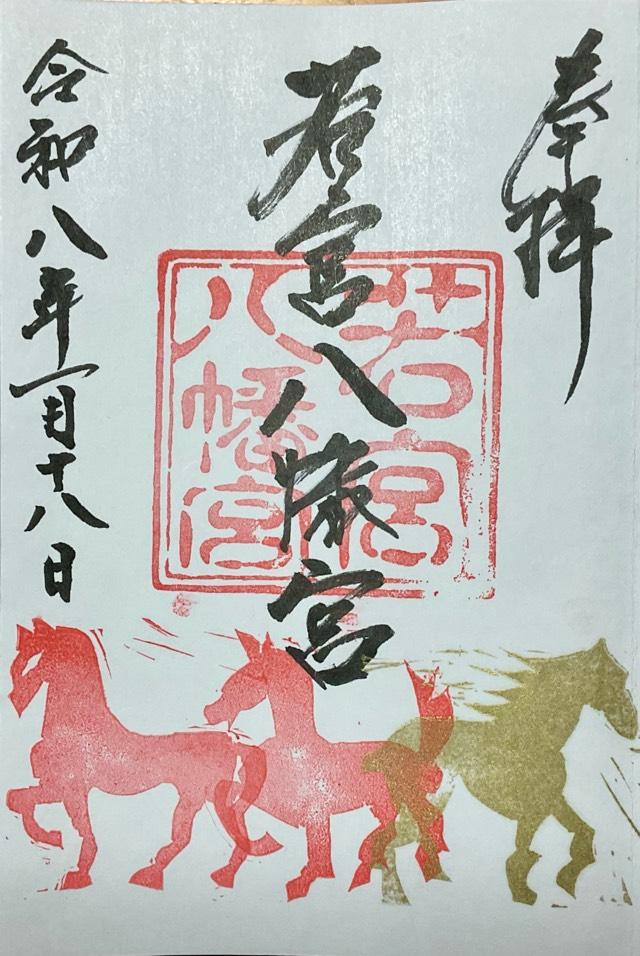 奉拝
若宮八幡宮
若宮
八幡宮
令和八年一月十八日